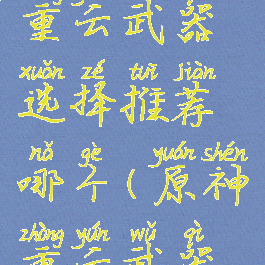 重云武器
xuǎn zé tuī jiàn
选择推荐
nǎ gè yuán shén
哪个(原神
zhòng yún wǔ qì
重云武器